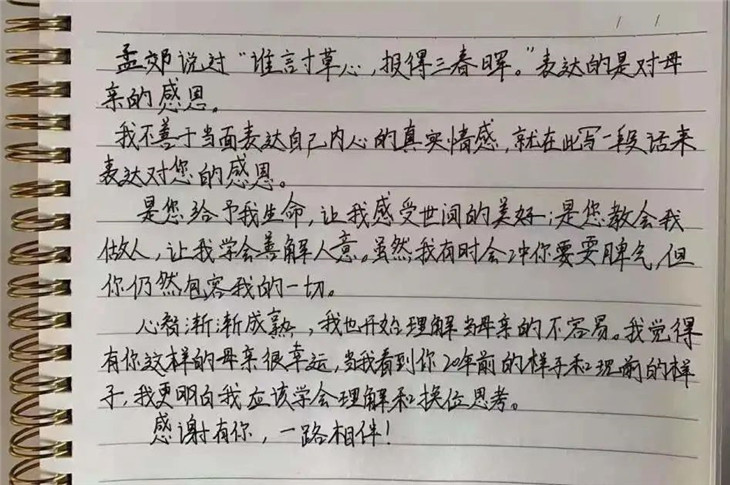 孟郊说过“谁言寸草心,报得三春晖。”表达的是对母
亲的感恩。
我不善于当面表达自己内心的真实情感,就在此写一段话来
表达对您的感恩。
是您给予我生命,让我感受世间的美好;是您教会我
做人,让我学会善解人意。虽然我有时会冲你耍耍脾气,但
你仍然包容我的一切。
心智渐渐成熟,我也开始理解当母亲的不容易。我觉得
有你这样的母亲很幸运,当我看到你20年前的样子和现前的样
子,我更明白我应该学会理解和换位思考。
感谢有你,一路相伴!